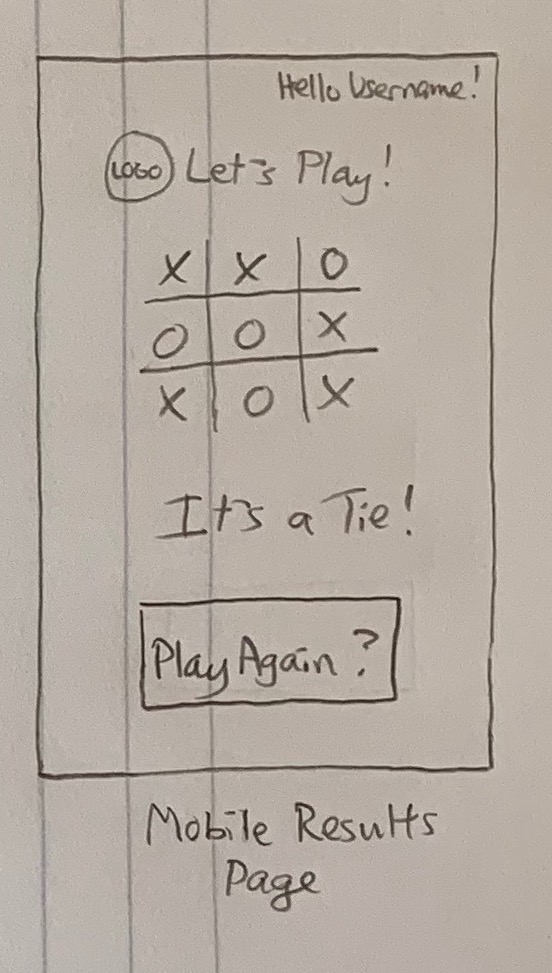 Hello Username!
LOGO Let's Play!
X X O
O O X
X O X
It's a Tie!
Play Again?
Mobile Results
Page